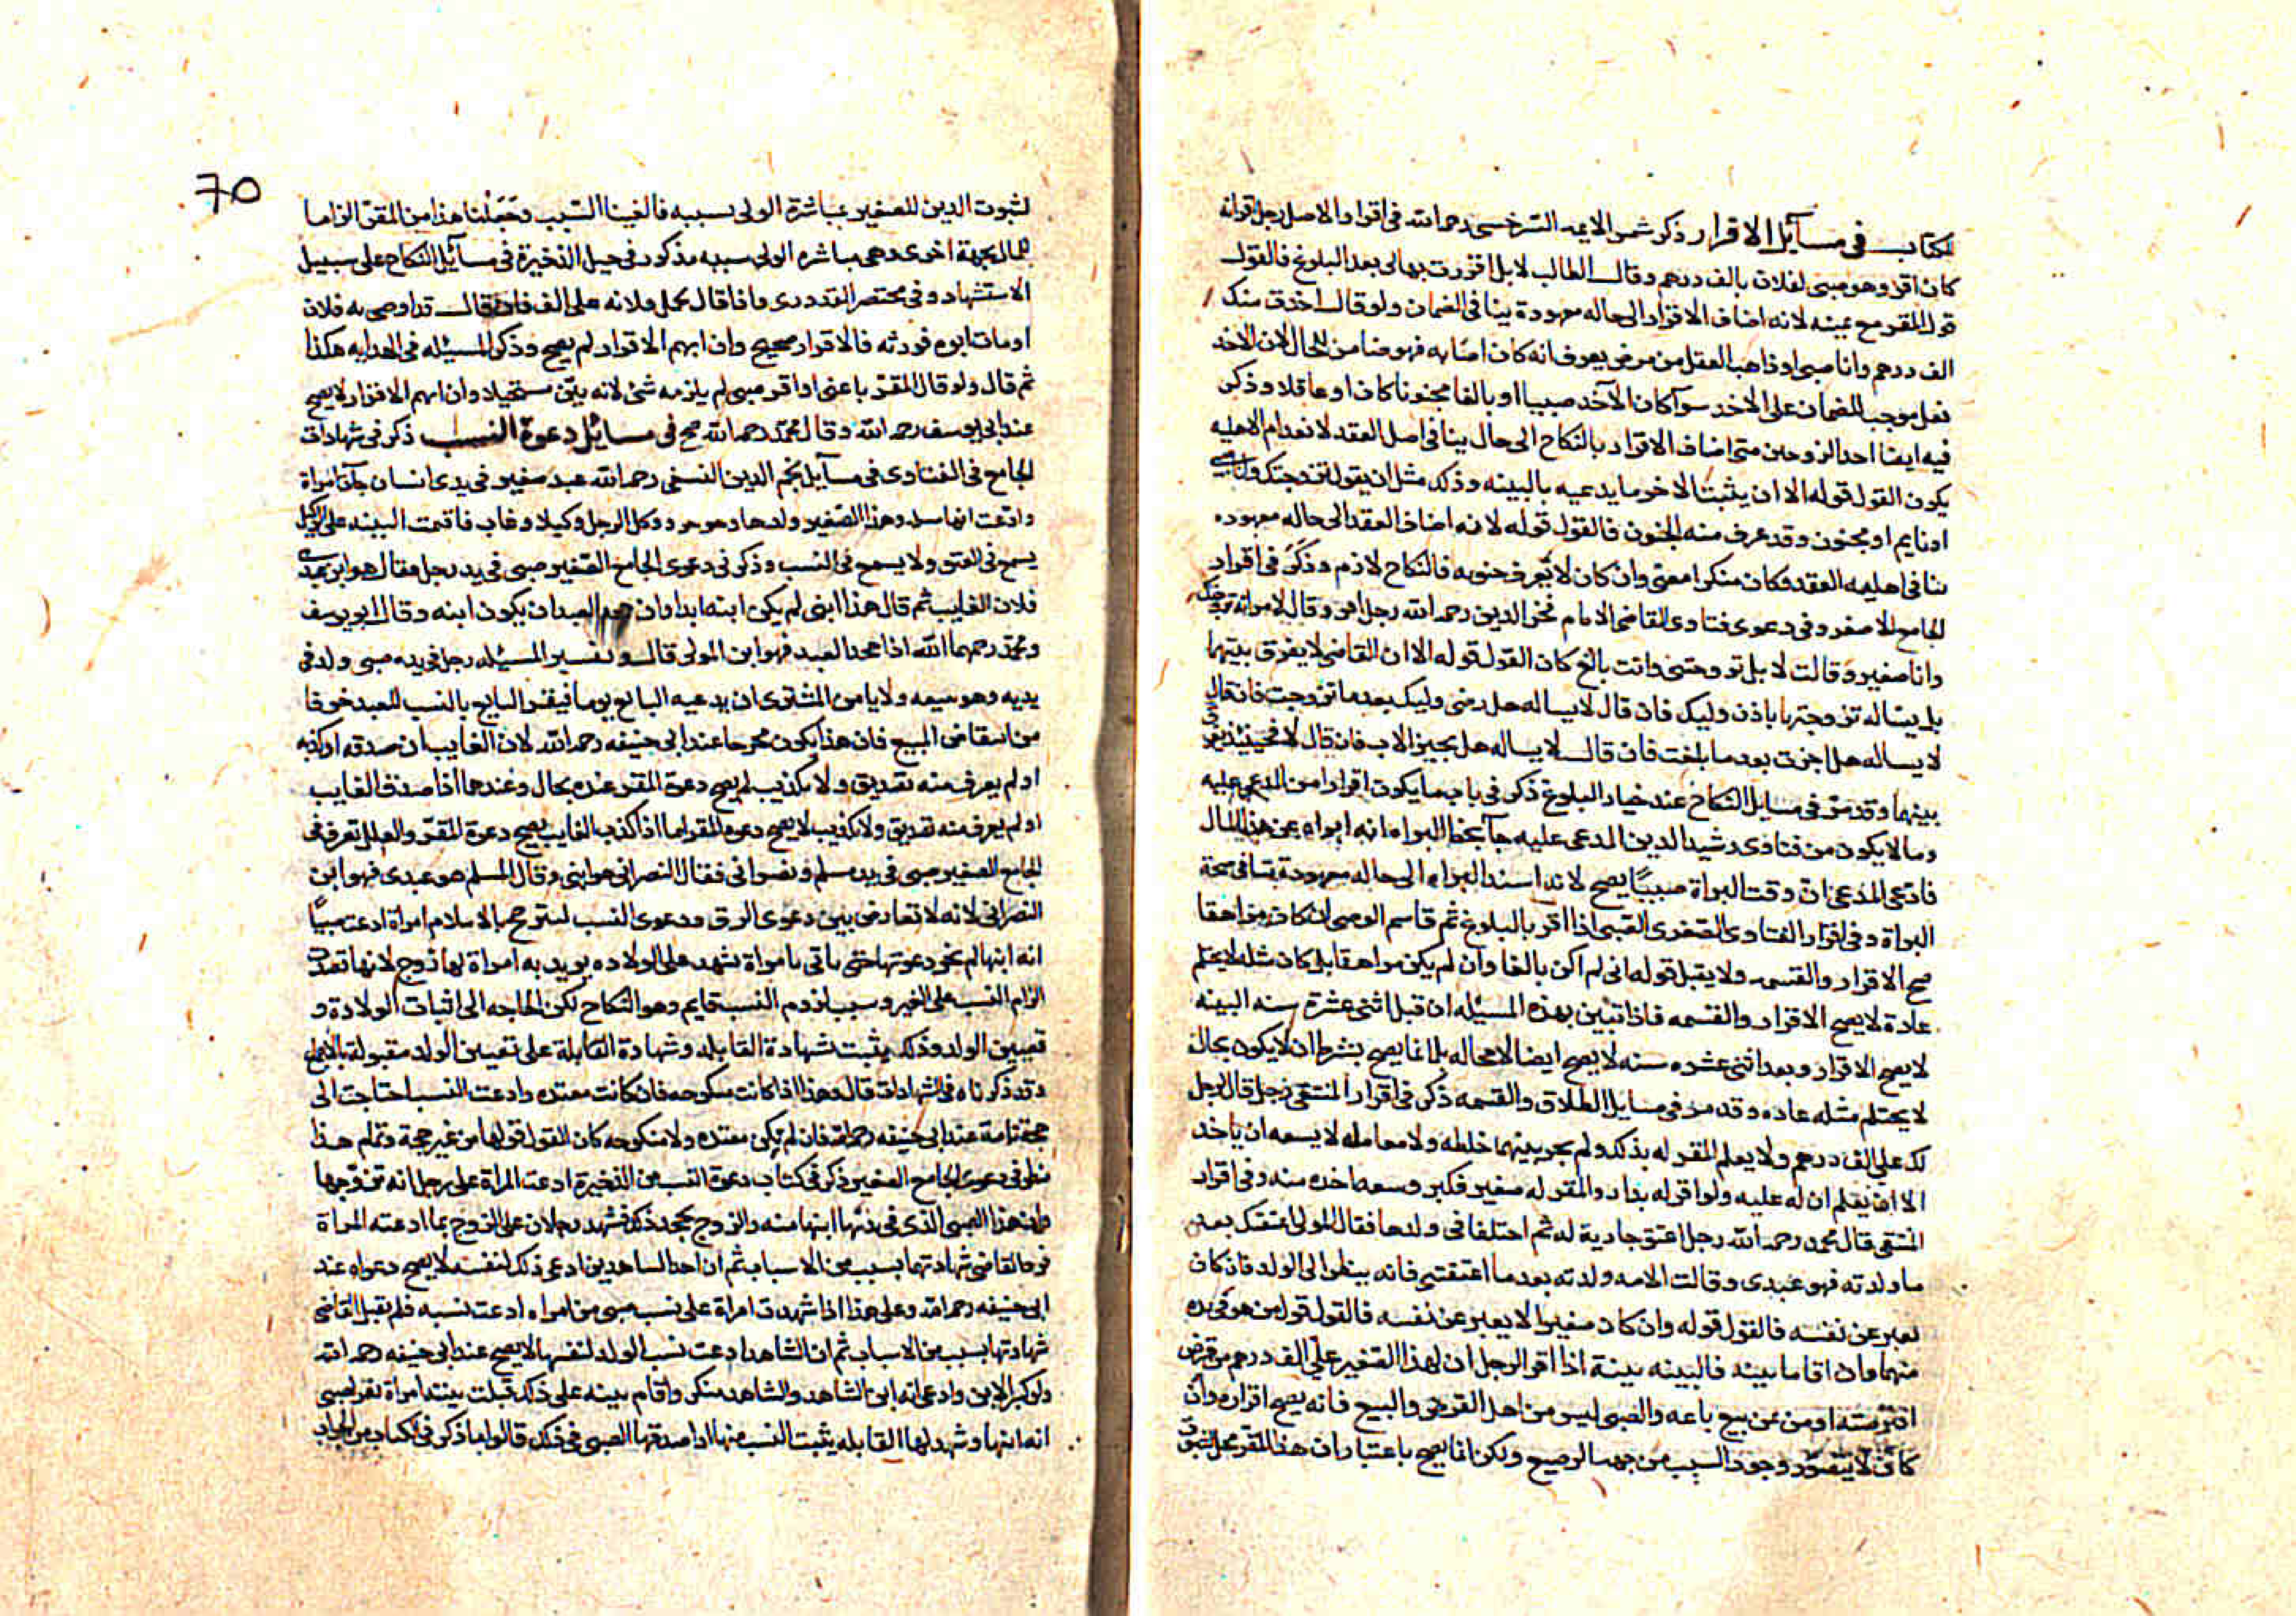 للكتاب في مسآيل الاقرار ذكر شمس الايمه السرخسي رحمه الله في اقرار الاصل رجل اقر انه
كان اقر وهو صبي لفلان بالف درهم وقال الطالب لا بل اقررت بها لي بعد البلوغ فالقول
قول المقر مع يمينه لانه اضاف الاقرار الى حاله معهودة ينافي الضمان ولو قال اخذت منك
الف درهم وانا صبي او ذاهب العقل من مرض يعرف انه كان اصابه فهو ضامن للحال لان الاخذ
فعل موجب للضمان على الاخذ سوآ كان الآخذ صبيا او بالغا مجنونا كان او عاقلا وذكر
فيه ايضا احد الزوجين متى اضاف الاقرار بالنكاح الى حال ينافي اصل العقد لانعدام الاهليه
يكون القول قوله الا ان يثبت الاخر ما يدعيه بالبينه وذلك مثل ان يقول تزوجتك وانا صبي
او نايم او مجنون وقد عرف منه الجنون فالقول قوله لانه اضاف العقد الى حاله معهوده
ينافي اهليه العقد فكان منكرا معنى وان كان لا يعرف جنونه فالنكاح لازم وذكر في اقرار
الجامع الاصغر وفي دعوى فتاوى القاضي الامام فخر الدين رحمه الله رجل اقر وقال لامراته تزوجتك
وانا صغير وقالت لا بل تزوجتني وانت بالغ كان القول قوله الا ان القاضي لا يفرق بينهما
بل يساله تزوجتها باذن وليك فان قال لا يساله هل رضي وليك بعد ما تزوجت فان قال
لا يساله هل اجزت بعد ما بلغت فان قال لا يساله هل يجيز الاب فان قال لا فحينئذ يفرق
بينهما وقد مر في مسايل النكاح عند خيار البلوغ ذكر في باب ما يكون اقرارا من المدعى عليه
وما لا يكون من فتاوى رشيد الدين المدعى عليه جآ بخط البراه انه ابراه عن هذا المال
فادعى المدعي ان وقت البراة صبيًا يصح لانه اسند البراه الى حاله معهودة ينافي صحة
البراة وفي اقرار الفتاوى الصغرى الصبي اذا اقر بالبلوغ ثم قاسم الوصي ان كان مراهقا
صح الاقرار والقسمه ولا يقبل قوله اني لم اكن بالغا وان لم يكن مراهقا بل كان مثله لا يحتلم
عادة لا يصح الاقرار والقسمه فاذا تبين بهذه المسئله ان قبل اثنى عشرة سنه البينه
لا يصح الاقرار وبعد اثنى عشره سنه لا يصح ايضا لا محاله بل انما يصح بشرط ان لا يكون بحال
لا يحتلم مثله عاده وقد مر في مسايل الطلاق والقسمه ذكر في اقرار المنتقى رجل قال لرجل
لك علي الف درهم ولا يعلم المقر له بذلك ولم يجر بينهما خلطه ولا معامله لا يسعه ان ياخذ
الا ان يعلم ان له عليه ولو اقر له بدار والمقر له صغير فكبر وسعه اخذه منه وفي اقرار
المنتقى قال محمد رحمه الله رجل اعتق جارية له ثم اختلفا في ولدها فقال المولى اعتقتك بعد
ما ولدته فهو عبدي وقالت الامه ولدته بعد ما اعتقتني فانه ينظر الى الولد فان كان
يعبر عن نفسه فالقول قوله وان كان صغيرا لا يعبر عن نفسه فالقول قول من هو في يده
منهما وان اقاما بينه فالبينه بينة اذا اقر الرجل ان لهذا الصغير علي الف درهم من قرض
اقترضته او من ثمن بيع باعه والصبي ليس من اهل القرض والبيع فانه يصح اقراره وان
كان لا يتصور وجود السبب من جهة الرضيع ولكن انما يصح باعتبار ان هذا المقر محل لثبوت
70
لثبوت الدين للصغير بمباشرة الولي لسببه فالغينا السبب وجعلنا هذا من المقر الزاما
للمال بجهة اخرى وهي مباشره الولي سببه مذكور في حيل الذخيرة في مسآئل النكاح على سبيل
الاستشهاد وفي مختصر القدوري واذا قال لحمل فلانه علي الف فان قال قد اوصى به فلان
او مات ابوه فورثه فالاقرار صحيح وان ابهم الاقرار لم يصح وذكر المسئله في الهدايه هكذا
ثم قال ولو قال المقر باعني او اقر صبي لم يلزمه شئ لانه بين مستحيلا وان ابهم الاقرار لا يصح
عند ابي يوسف رحمه الله وقال محمد رحمه الله صح في مسائل دعوة النسب ذكر في شهادات
الجامع في الفتاوى في مسآيل نجم الدين النسفي رحمه الله عبد صغير في يدي انسان جآت امراة
وادعت انها وهذا الصغير ولدها وهو حر ووكل الرجل وكيلا وغاب فاقيمت البينه على الوكيل
يسمع في العتق ولا يسمع في النسب وذكر في دعوى الجامع الصغير صبي في يد رجل فقال هو ابن عبدي
فلان الغايب ثم قال هذا ابني لم يكن ابنه ابدا وان جحد العبد ان يكون ابنه وقال ابو يوسف
ومحمد رحمهما الله اذا جحد العبد فهو ابن المولى قال وتفسير المسئله رجل في يده صبي ولد في
يديه وهو يبيعه ولا يامن المشترى ان يدعيه البايع يوما فيقر البايع بالنسب للعبد خوفا
من انتقاض البيع فان هذا يكون مخرجا عند ابي حنيفه رحمه الله لان الغايب ان صدقه او كذبه
او لم يعرف منه تصديق ولا تكذيب لم يصح دعوة المقر عنده بحال وعندهما اذا صدق الغايب
او لم يعرف منه تصديق ولا تكذيب لا يصح دعوه المقر اما اذا كذب الغايب يصح دعوة المقر والعلل تعرف في
الجامع الصغير صبي في يد مسلم ونصراني فقال النصراني هو ابني وقال المسلم هو عبدي فهو ابن
النصراني لانه لا تعارض بين دعوى الرق ودعوى النسب ليترجح بالاسلام امراة ادعت صبيًا
انه ابنها لم يجز دعوتها حتى ياتي بامراة تشهد على الولاده يريد به امراة لها زوج لانها تقصد
الزام النسب على الغير وسبب لزوم النسب قايم وهو النكاح لكن الحاجه الى اثبات الولادة و
تعيين الولد وذلك يثبت بشهادة القابله وشهادة القابلة على تعيين الولد مقبولة بالاجماع
وقد ذكرناه في الشهادات قال وهذا اذا كانت منكوحه فان كانت معتده وادعت النسب احتاجت الى
حجة تامة عند ابي حنيفه رحمه الله فان لم يكن معتده ولا منكوحه كان القول قولها من غير حجة وتمام هذا
نظر في دعوى الجامع الصغير ذكر في كتاب دعوة النسب من الذخيرة ادعت المراة على رجل انه تزوجها
وان هذا الصبي الذي في يدها ابنها منه والزوج يجحد ذلك فشهد رجلان على الزوج بما ادعته المراة
فرد القاضي شهادتهما بسبب من الاسباب ثم ان احد الشاهدين ادعى ذلك لنفسه لا يصح دعواه عند
ابي حنيفه رحمه الله وعلى هذا اذا شهدت امراة على نسب صبي من امراه ادعت نسبه فلم يقبل القاضي
شهادتها بسبب من الاسباب ثم ان الشاهد ادعت نسب الولد لنفسها لا يصح عند ابي حنيفه رحمه الله
ولو كبر الابن وادعى انه ابن الشاهد والشاهد منكر واقام بينه على ذلك قبلت بينته امراة تقر لصبي
انه ابنها وشهد لها القابله يثبت النسب منها اذا صدقها الصبي في ذلك قالوا ما ذكر في الكتاب من الجواب